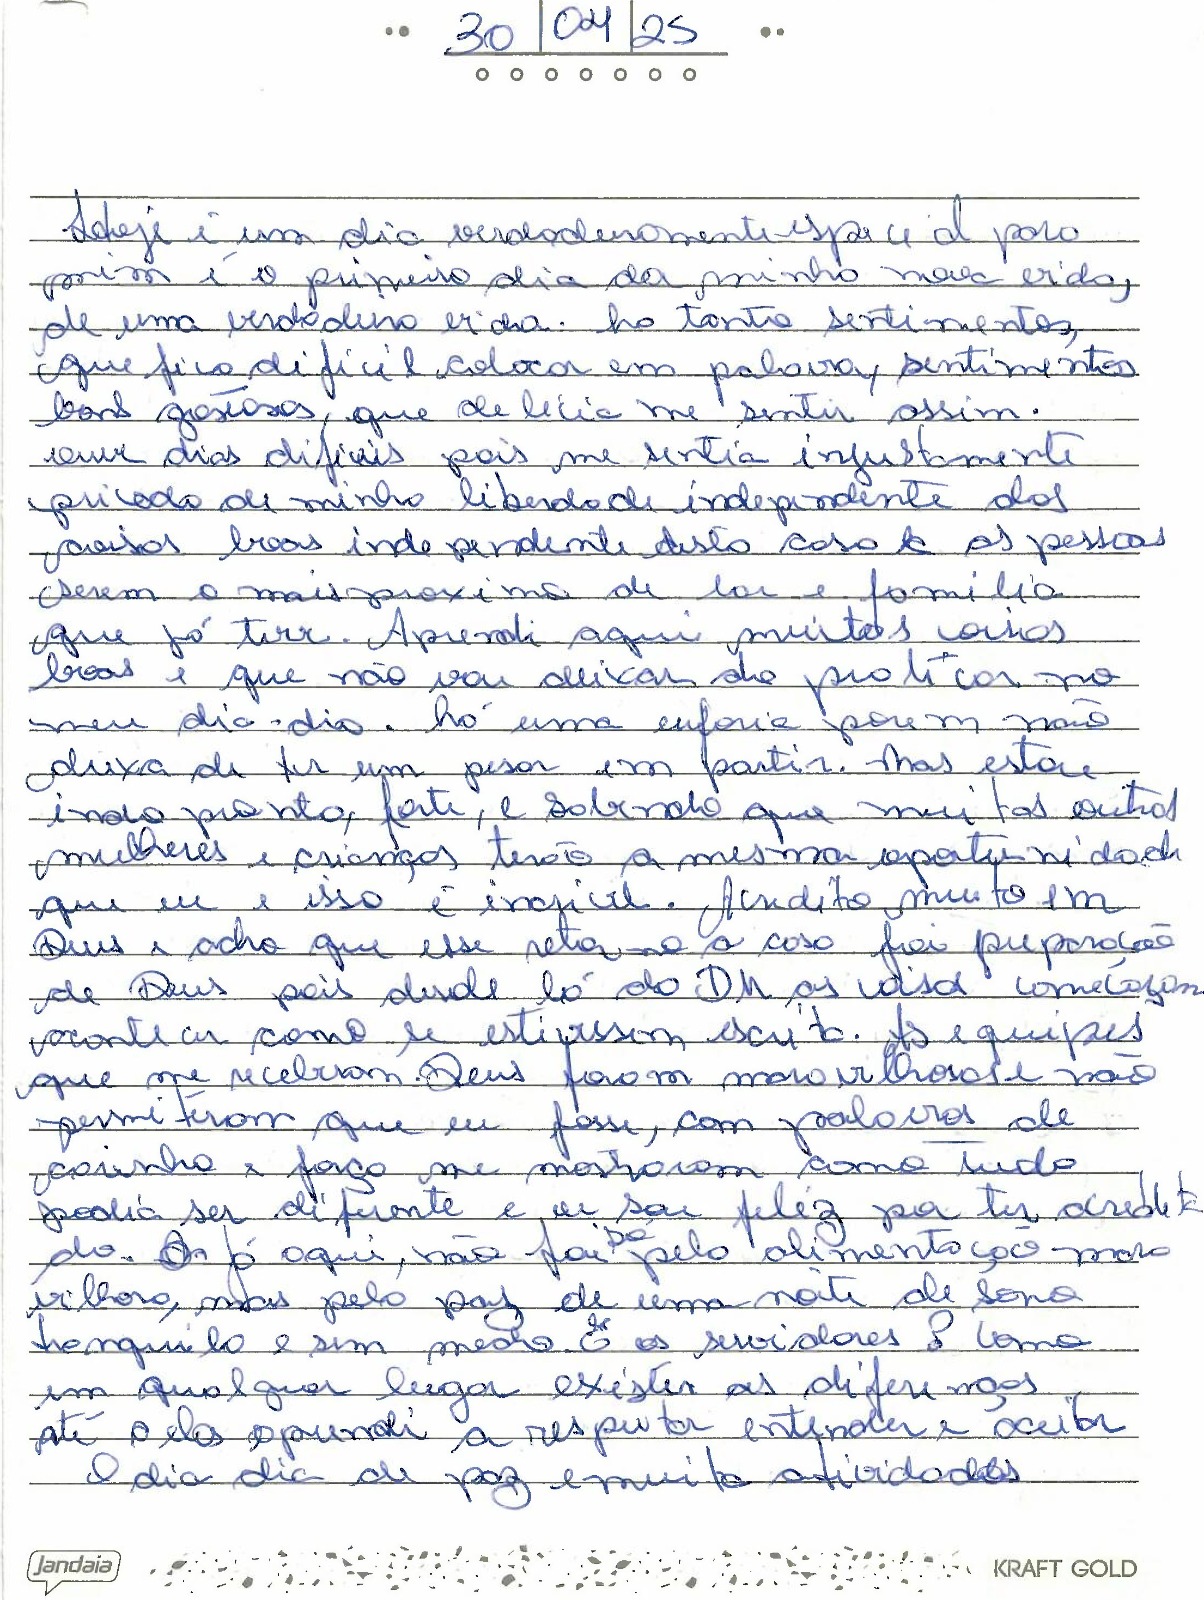 30 04 25
Hoje é um dia verdadeiramente especial para
mim é o primeiro dia da minha nova vida,
de uma verdadeira vida. ha tanto sentimentos,
que fica dificil colocar em palavra, sentimentos
bons gostosos, que delicia me sentir assim.
dias dificeis pois me sentia injustamente
privada de minha liberdade independente das
coisas boas independente desta casa e as pessoas
serem o mais proximo de lar e familia
que já tive. Aprendi aqui muitas coisas
boas e que não vou deixar de praticar no
meu dia-dia. há uma euforia porem não
deixa de ter um pesar em partir. Mas estou
indo pronta, forte, e sabendo que muitas outras
mulheres e crianças terão a mesma oportunidade
que eu e isso é incrivel. Acredito muito em
Deus e acho que esse retorno a casa foi preparação
de Deus pois desde lá do DM as coisa começaram
acontecer como se estivessem escrito. As equipes
que me receberam. Deus foram maravilhosas e não
permitiram que eu fosse, com palavras de
carinho e força me mostraram como tudo
podia ser diferente e eu sou feliz por ter acredita
do. já aqui, não foi só pela alimentação mara
vilhosa, mas pela paz de uma noite de sono
tranquila e sem medo. E os servidores? Como
em qualquer lugar existem as diferenças
até elas aprendi a respeitar entender e aceitar
O dia dia de paz e muita atividades
Jandaia
KRAFT GOLD